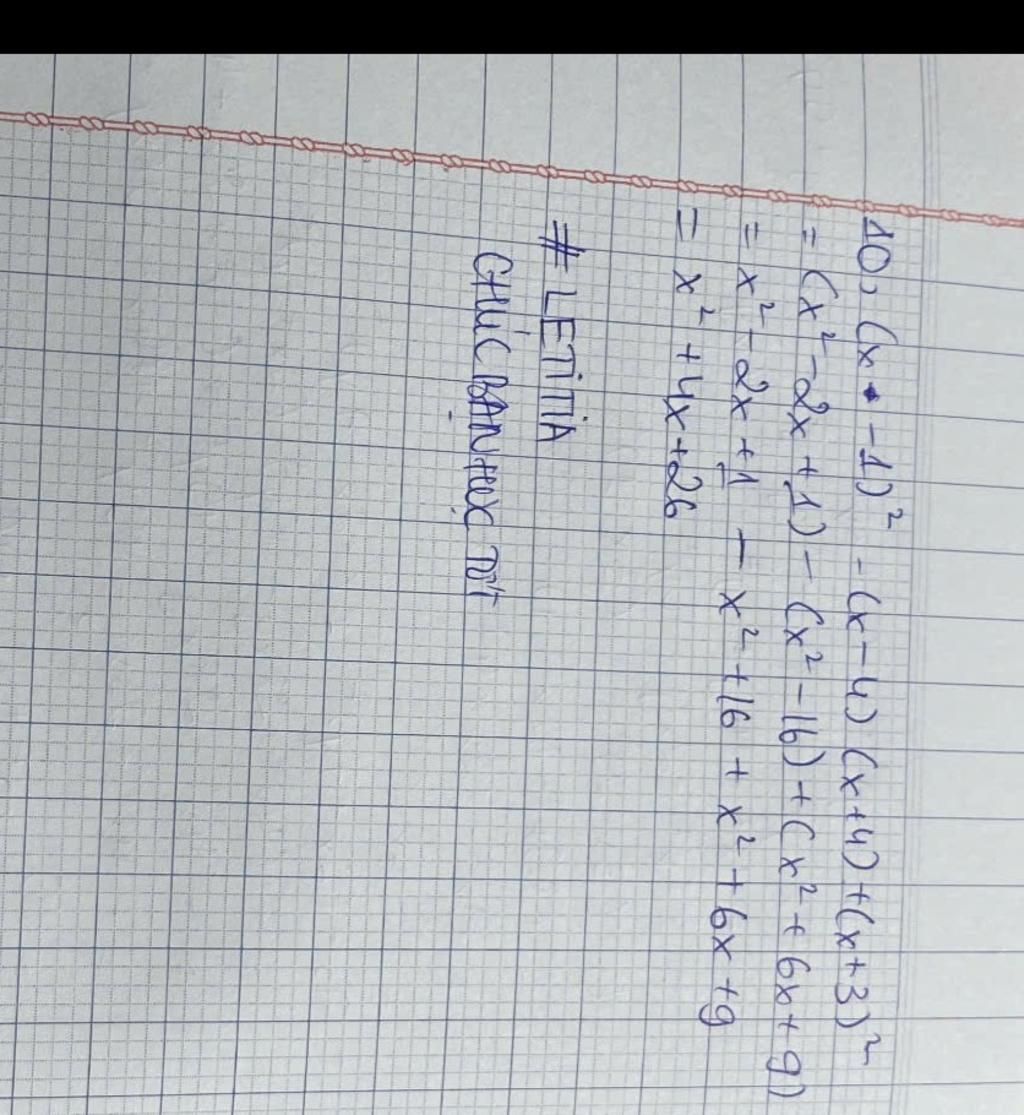 10, (x - 1)² - (x - 4) (x + 4) + (x + 3)²
= (x² - 2x + 1) - (x² - 16) + (x² + 6x + 9)
= x² - 2x + 1 - x² + 16 + x² + 6x + 9
= x² + 4x + 26
# LETITIA
CHÚC BẠN HỌC TỐT